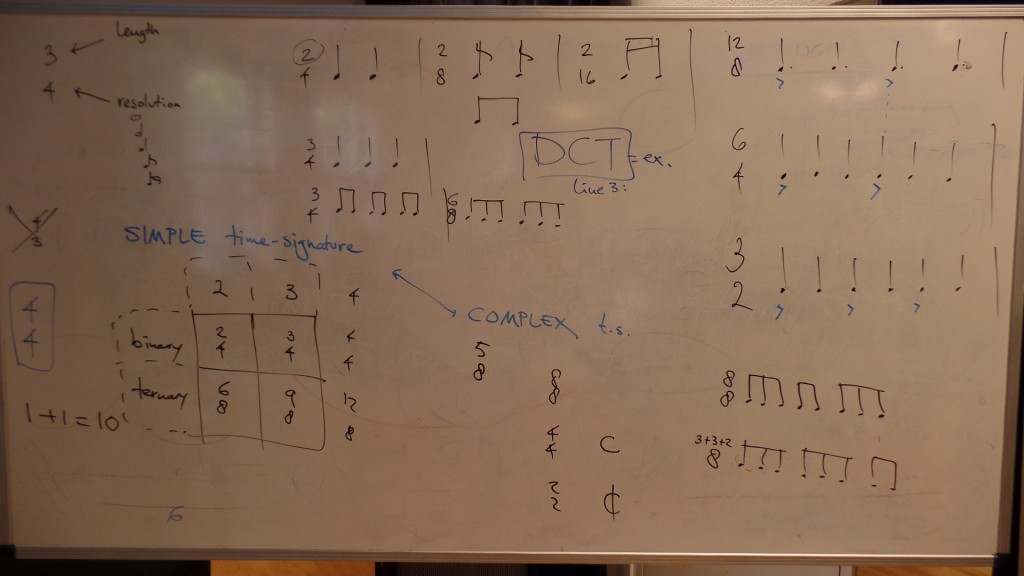 3 Length
4 resolution
2
4
2
8
2
16
12
8
>
>
3
4
DCT = ex.
Line 3:
6
4
>
>
3
4
6
8
SIMPLE time-signature
4
4
2 3 4
binary
2
4
3
4
4
4
ternary
6
8
9
8
12
8
1+1=10
6
COMPLEX t.s.
5
8
8
8
4
4
C
2
2
¢
3
2
>
>
>
8
8
3+3+2
8